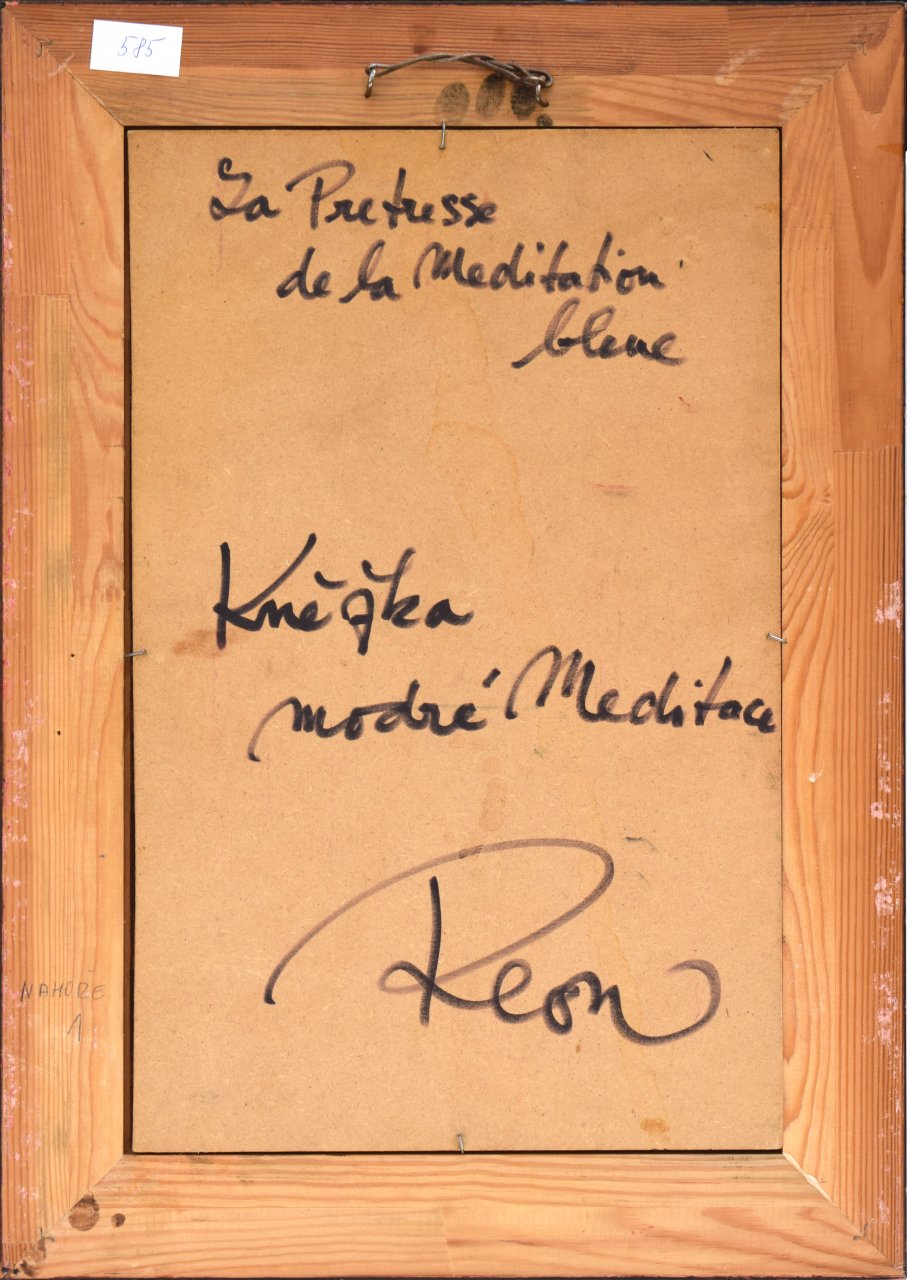 585
La Pretresse
de la Meditation
bleue
Kněžka
modré Meditace
Reon
NAHOŘE
1